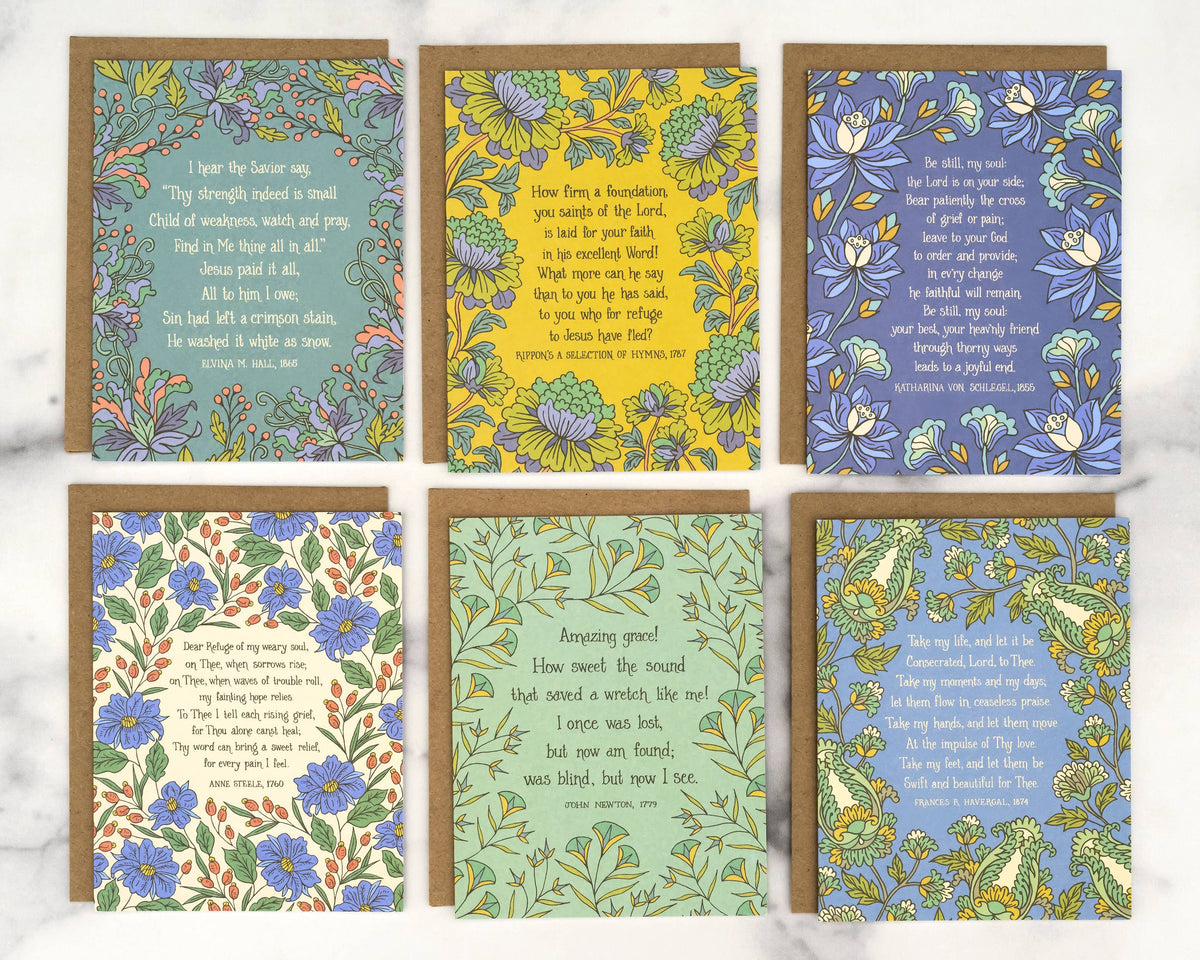 I hear the Savior say,
“Thy strength indeed is small
Child of weakness, watch and pray,
Find in Me thine all in all.”
Jesus paid it all,
All to him I owe;
Sin had left a crimson stain,
He washed it white as snow.
ELVINA M. HALL, 1865
How firm a foundation,
you saints of the Lord,
is laid for your faith
in his excellent Word!
What more can he say
than to you he has said,
to you who for refuge
to Jesus have fled?
RIPPON'S A SELECTION OF HYMNS, 1787
Be still, my soul:
the Lord is on your side;
Bear patiently the cross
of grief or pain;
leave to your God
to order and provide;
in ev'ry change
he faithful will remain.
Be still, my soul:
your best, your heav'nly friend
through thorny ways
leads to a joyful end.
KATHARINA VON SCHLEGEL, 1855
Dear Refuge of my weary soul,
on Thee, when sorrows rise;
on Thee, when waves of trouble roll,
my fainting hope relies.
To Thee I tell each rising grief,
for Thou alone canst heal;
Thy word can bring a sweet relief,
for every pain I feel.
ANNE STEELE, 1760
Amazing grace!
How sweet the sound
that saved a wretch like me!
I once was lost,
but now am found;
was blind, but now I see.
JOHN NEWTON, 1779
Take my life, and let it be
Consecrated, Lord, to Thee.
Take my moments and my days;
let them flow in ceaseless praise.
Take my hands, and let them move
At the impulse of Thy love.
Take my feet, and let them be
Swift and beautiful for Thee.
FRANCES R. HAVERGAL, 1874